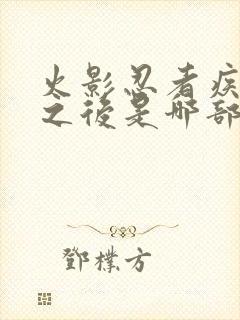 火影忍者疾
之後是哪部
鄧樸方